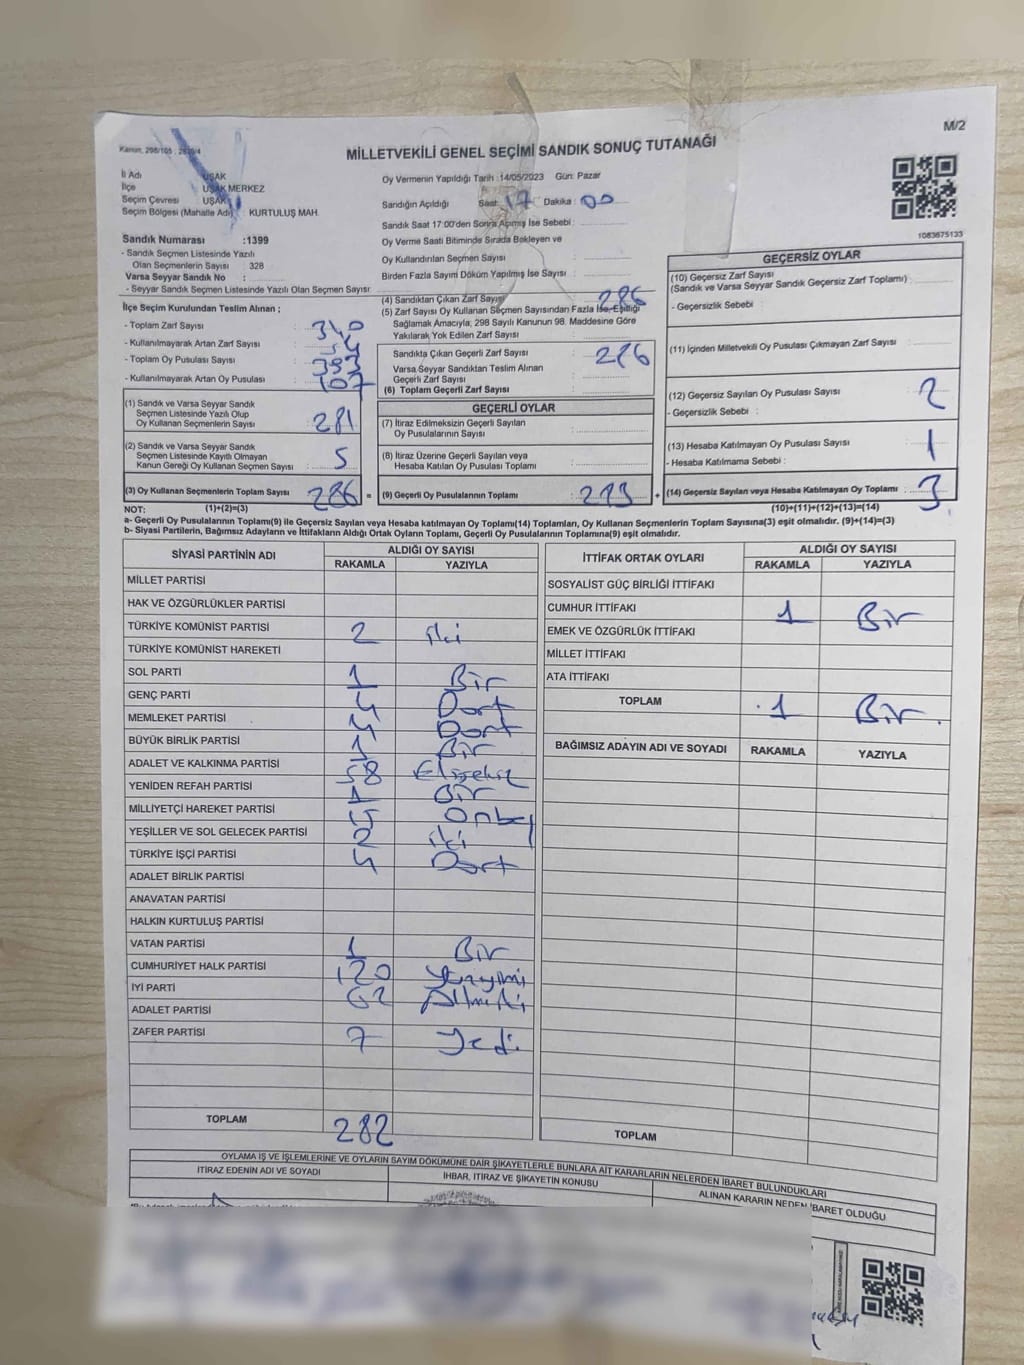 M/2
Kanun: 298/105 : 2839/4
MİLLETVEKİLİ GENEL SEÇİMİ SANDIK SONUÇ TUTANAĞI
İl Adı UŞAK
İlçe UŞAK MERKEZ
Seçim Çevresi UŞAK
Seçim Bölgesi (Mahalle Adı) : KURTULUŞ MAH.
Sandık Numarası :1399
- Sandık Seçmen Listesinde Yazılı
Olan Seçmenlerin Sayısı 328
Varsa Seyyar Sandık No :
- Seyyar Sandık Seçmen Listesinde Yazılı Olan Seçmen Sayısı:
Oy Vermenin Yapıldığı Tarih :14/05/2023 Gün: Pazar
Sandığın Açıldığı Saat: 17 Dakika : 00
Sandık Saat 17:00'den Sonra Açılmış İse Sebebi :
Oy Verme Saati Bitiminde Sırada Bekleyen ve
Oy Kullandırılan Seçmen Sayısı :
Birden Fazla Sayım Döküm Yapılmış İse Sayısı :
1083675133
İlçe Seçim Kurulundan Teslim Alınan ;
- Toplam Zarf Sayısı : 340
- Kullanılmayarak Artan Zarf Sayısı : 54
- Toplam Oy Pusulası Sayısı : 393
- Kullanılmayarak Artan Oy Pusulası : 107
(1) Sandık ve Varsa Seyyar Sandık
Seçmen Listesinde Yazılı Olup
Oy Kullanan Seçmenlerin Sayısı : 281
(2) Sandık ve Varsa Seyyar Sandık
Seçmen Listesinde Kayıtlı Olmayan
Kanun Gereği Oy Kullanan Seçmen Sayısı : 5
(3) Oy Kullanan Seçmenlerin Toplam Sayısı : 286 =
(4) Sandıktan Çıkan Zarf Sayısı : 286
(5) Zarf Sayısı Oy Kullanan Seçmen Sayısından Fazla İse, Eşitliği
Sağlamak Amacıyla, 298 Sayılı Kanunun 98. Maddesine Göre
Yakılarak Yok Edilen Zarf Sayısı :
Sandıkta Çıkan Geçerli Zarf Sayısı : 286
Varsa Seyyar Sandıktan Teslim Alınan
Geçerli Zarf Sayısı :
(6) Toplam Geçerli Zarf Sayısı :
GEÇERLİ OYLAR
(7) İtiraz Edilmeksizin Geçerli Sayılan
Oy Pusulalarının Sayısı :
(8) İtiraz Üzerine Geçerli Sayılan veya
Hesaba Katılan Oy Pusulası Toplamı :
(9) Geçerli Oy Pusulalarının Toplamı : 283 +
GEÇERSİZ OYLAR
(10) Geçersiz Zarf Sayısı
(Sandık ve Varsa Seyyar Sandık Geçersiz Zarf Toplamı) :
- Geçersizlik Sebebi :
(11) İçinden Milletvekili Oy Pusulası Çıkmayan Zarf Sayısı :
(12) Geçersiz Sayılan Oy Pusulası Sayısı : 2
- Geçersizlik Sebebi :
(13) Hesaba Katılmayan Oy Pusulası Sayısı : 1
- Hesaba Katılmama Sebebi :
(14) Geçersiz Sayılan veya Hesaba Katılmayan Oy Toplamı : 3
NOT: (1)+(2)=(3) (10)+(11)+(12)+(13)=(14)
a- Geçerli Oy Pusulalarının Toplamı(9) ile Geçersiz Sayılan veya Hesaba katılmayan Oy Toplamı(14) Toplamları, Oy Kullanan Seçmenlerin Toplam Sayısına(3) eşit olmalıdır. (9)+(14)=(3)
b- Siyasi Partilerin, Bağımsız Adayların ve İttifakların Aldığı Ortak Oyların Toplamı, Geçerli Oy Pusulalarının Toplamına(9) eşit olmalıdır.
SİYASİ PARTİNİN ADI ALDIĞI OY SAYISI
RAKAMLA YAZIYLA
MİLLET PARTİSİ
HAK VE ÖZGÜRLÜKLER PARTİSİ
TÜRKİYE KOMÜNİST PARTİSİ 2 iki
TÜRKİYE KOMÜNİST HAREKETİ
SOL PARTİ 1 Bir
GENÇ PARTİ 4 Dört
MEMLEKET PARTİSİ 4 Dort
BÜYÜK BİRLİK PARTİSİ 1 Bir
ADALET VE KALKINMA PARTİSİ 58 Elisekiz
YENİDEN REFAH PARTİSİ 1 Bir
MİLLİYETÇİ HAREKET PARTİSİ 15 Onbeş
YEŞİLLER VE SOL GELECEK PARTİSİ 2 iki
TÜRKİYE İŞÇİ PARTİSİ 4 Dort
ADALET BİRLİK PARTİSİ
ANAVATAN PARTİSİ
HALKIN KURTULUŞ PARTİSİ
VATAN PARTİSİ 1 Bir
CUMHURİYET HALK PARTİSİ 120 Yüzyirmi
İYİ PARTİ 62 Altmiki
ADALET PARTİSİ
ZAFER PARTİSİ 7 Yedi
TOPLAM 282
İTTİFAK ORTAK OYLARI ALDIĞI OY SAYISI
RAKAMLA YAZIYLA
SOSYALİST GÜÇ BİRLİĞİ İTTİFAKI
CUMHUR İTTİFAKI 1 Bir
EMEK VE ÖZGÜRLÜK İTTİFAKI
MİLLET İTTİFAKI
ATA İTTİFAKI
TOPLAM 1 Bir
BAĞIMSIZ ADAYIN ADI VE SOYADI RAKAMLA YAZIYLA
TOPLAM
OYLAMA İŞ VE İŞLEMLERİNE VE OYLARIN SAYIM DÖKÜMÜNE DAİR ŞİKAYETLERLE BUNLARA AİT KARARLARIN NELERDEN İBARET BULUNDUKLARI
İTİRAZ EDENİN ADI VE SOYADI İHBAR, İTİRAZ VE ŞİKAYETİN KONUSU ALINAN KARARIN NEDEN İBARET OLDUĞU